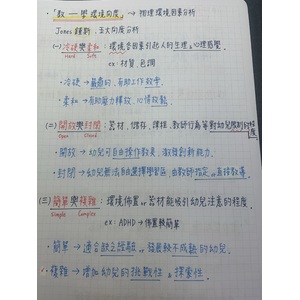 ·「教－學環境向度」→物理環境因素分析
Jones 五大向度分析
(一)冷硬與柔和:環境因素引起人的生理&心理感覺
Hard Soft
ex:材質、色調
·冷硬→嚴肅的,有助工作效率。
·柔和→有助壓力釋放、心情放鬆。
(二)開放與封閉:器材、儲存、課程、教師行為等對幼兒限制的程度。
Open Closed
·開放→幼兒可自由操作教具,激發創新能力。
·封閉→幼兒無法自由選擇學習區,由教師指定or直接教導。
(三)簡單與複雜:環境佈置&器材能吸引幼兒注意的程度。
Simple Complex
ex:ADHD→佈置較簡單
·簡單→適合缺乏經驗or發展較不成熟的幼兒。
·複雜→增加幼兒的挑戰性&探索性。